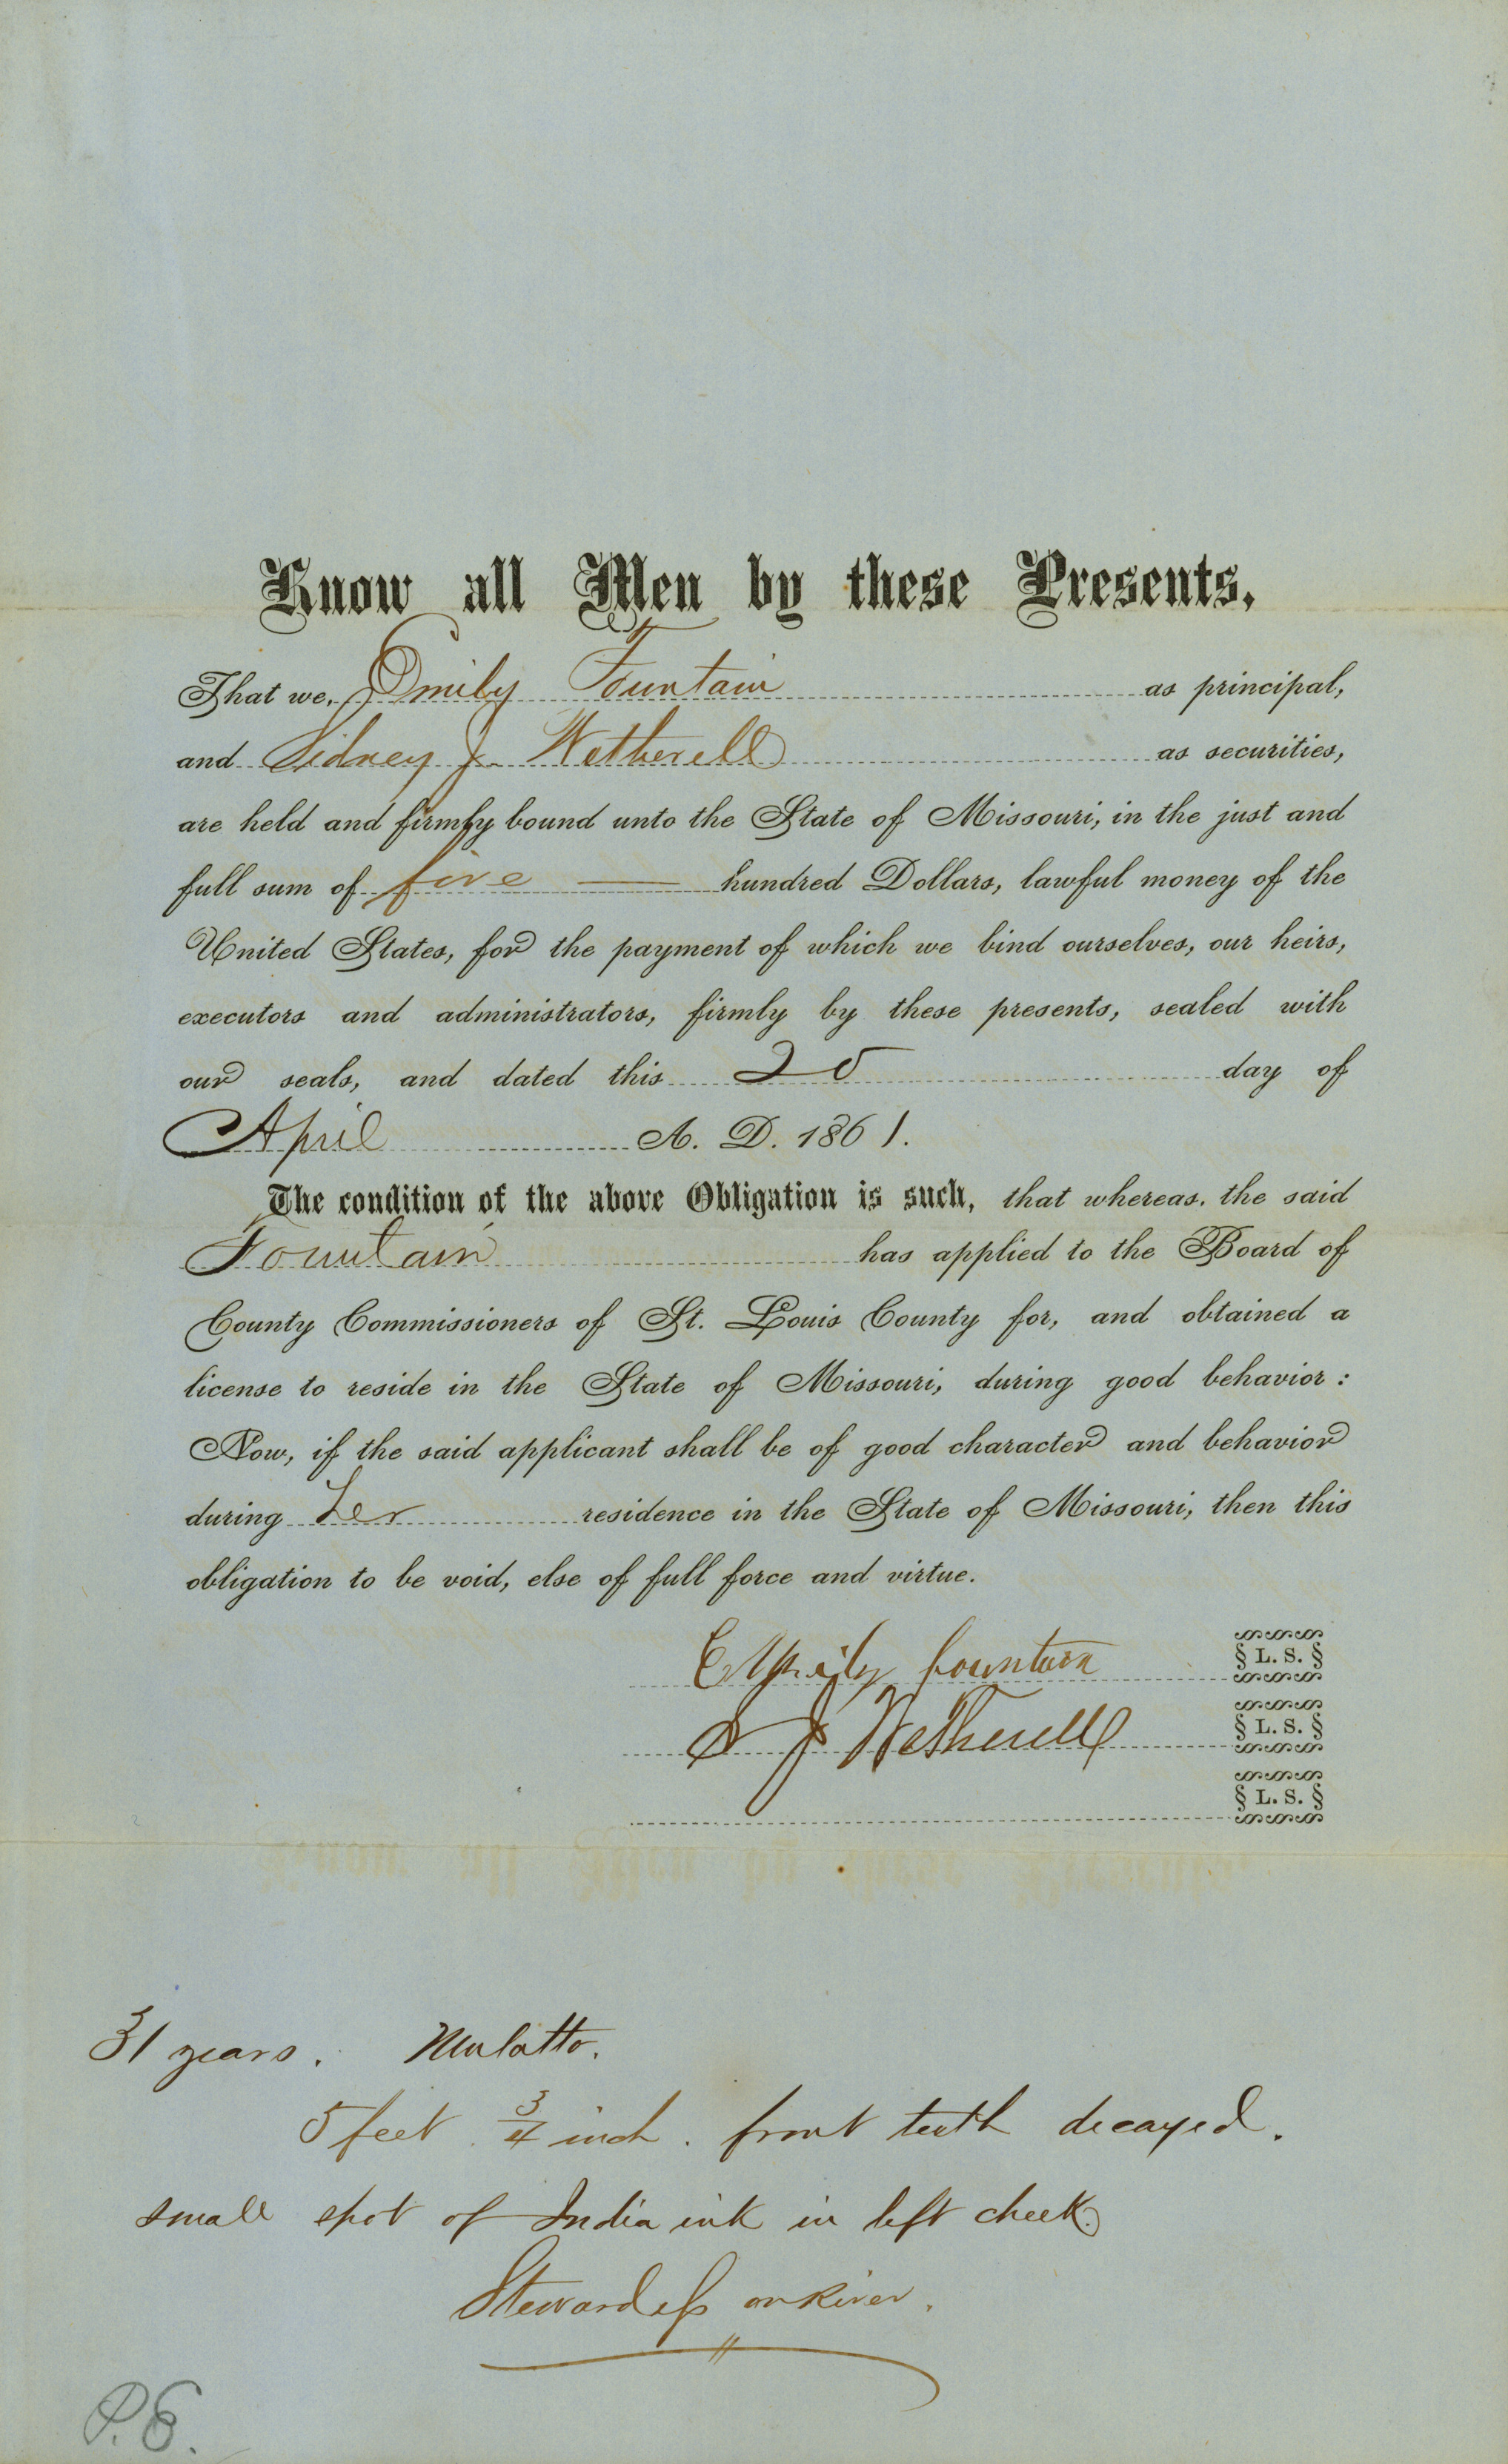 Know all Men by these Presents,
That we, Emily Fountain as principal,
and Sidney J. Wetherell as securities,
are held and firmly bound unto the State of Missouri, in the just and
full sum of five — hundred Dollars, lawful money of the
United States, for the payment of which we bind ourselves, our heirs,
executors and administrators, firmly by these presents, sealed with
our seals, and dated this 25 day of
April A. D. 1861.
The condition of the above Obligation is such, that whereas, the said
Fountain has applied to the Board of
County Commissioners of St. Louis County for, and obtained a
license to reside in the State of Missouri, during good behavior:
Now, if the said applicant shall be of good character and behavior
during her residence in the State of Missouri, then this
obligation to be void, else of full force and virtue.
Emily fountain § L. S. §
S J Wetherell § L. S. §
§ L. S. §
31 years. Mulatto.
5 feet 3/4 inch. front teeth decayed.
small spot of India ink in left cheek.
Stewardess on River.
P.E.